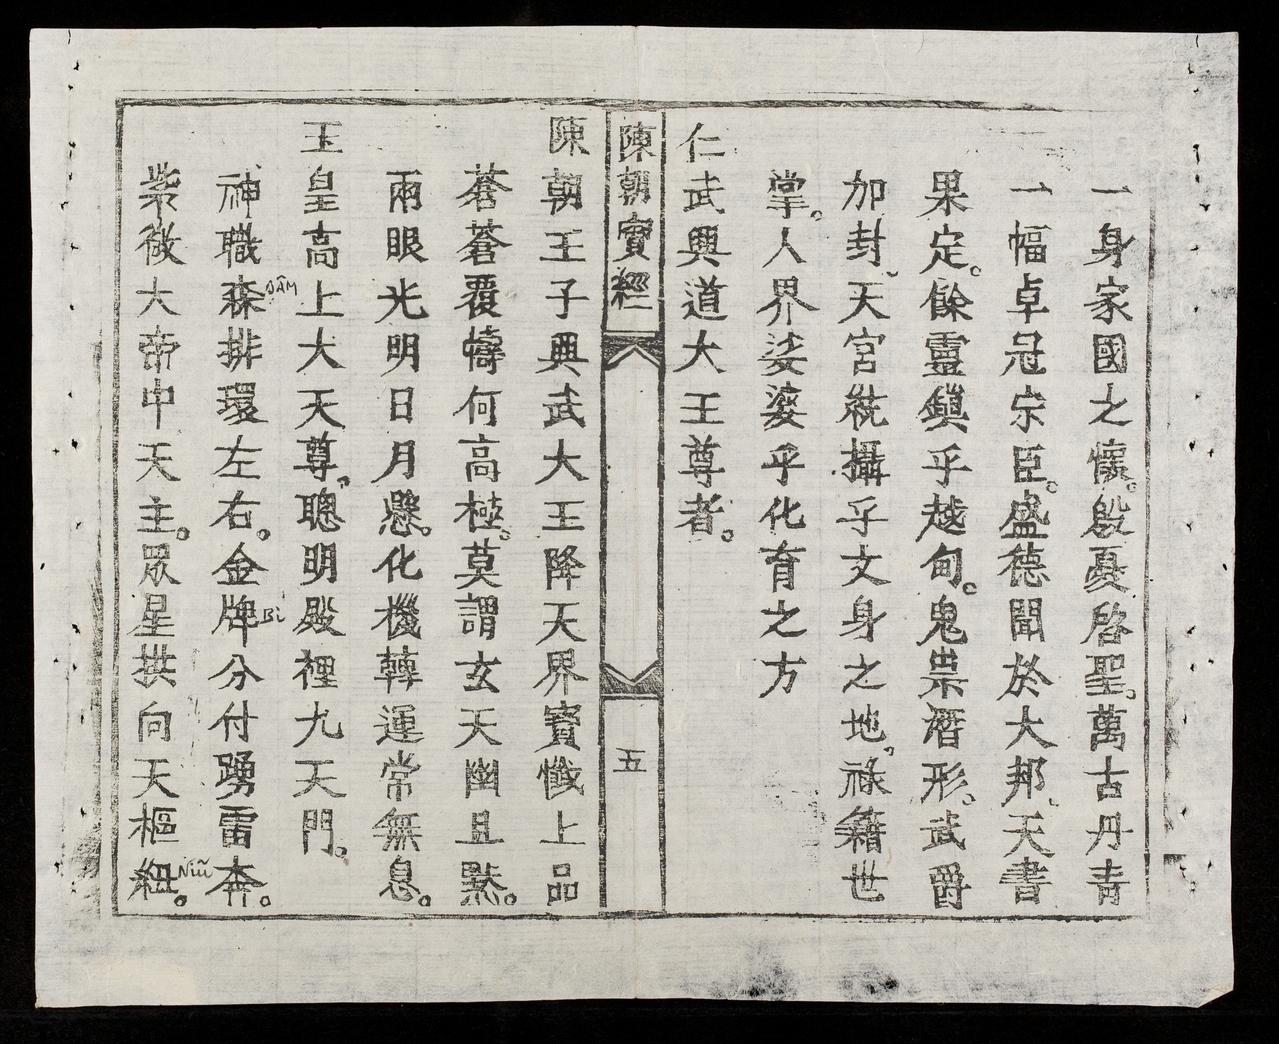 一身家國之懷。殷憂啓聖。萬古丹青
一幅卓冠宗臣。盛德聞於大邦、天書
果定。餘靈鎮乎越甸。鬼祟潛形。武爵
加封、天宮統攝乎文身之地、祿籍世
掌。人界娑婆乎化育之方
仁武興道大王尊者。
陳朝寶經
五
陳朝王子興武大王降天界寶懺上品
蒼蒼覆幬何高極。莫謂玄天幽且默。
兩眼光明日月懸。化機轉運常無息。
玉皇高上大天尊、聰明殿裡九天門。
神職森排環左右。金牌分付踴雷奔。
紫微大帝中天主。眾星拱向天樞紐。
Sâm
Bì
Nĩu